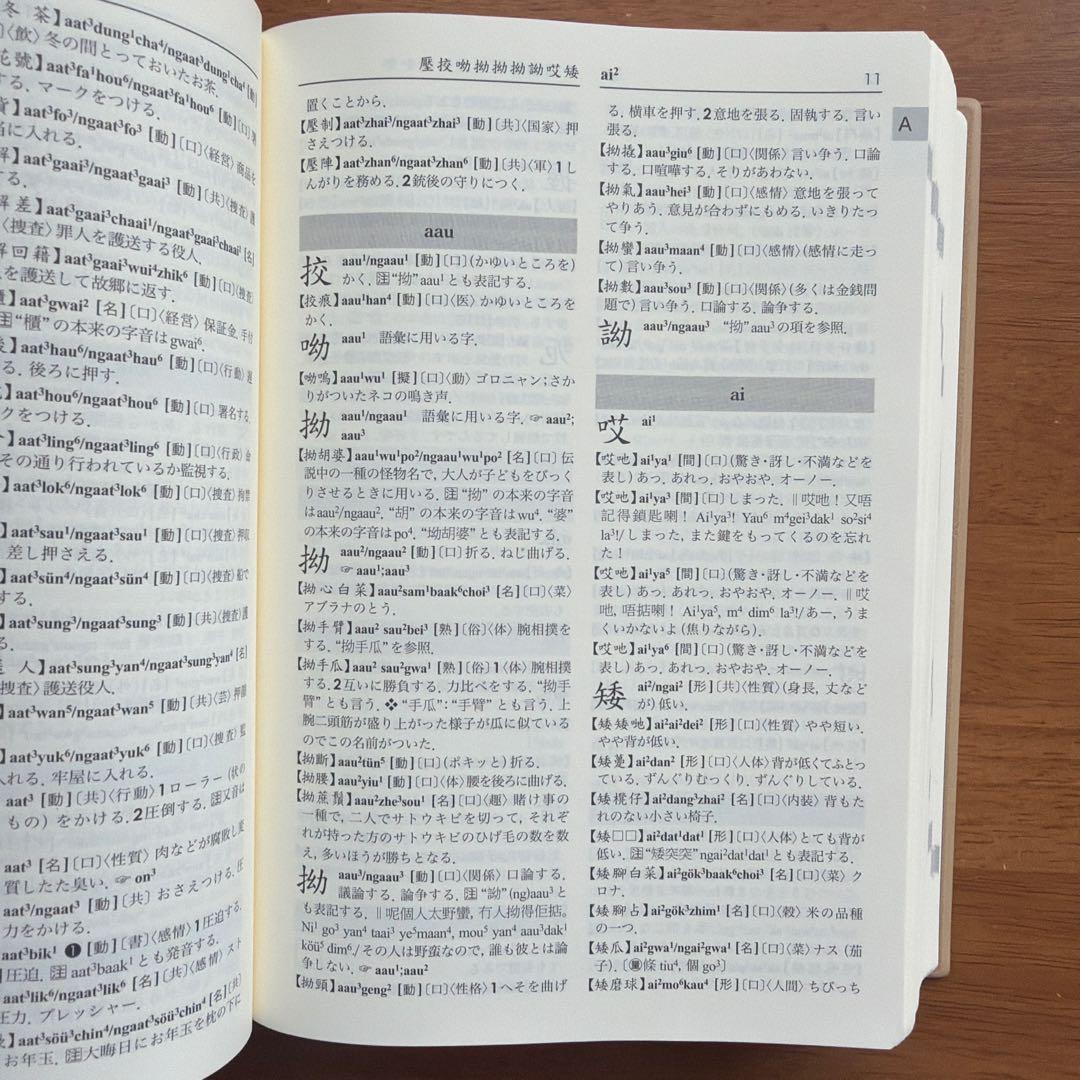 冬 茶】aat³dung¹cha⁴/ngaat³dung¹cha⁴ [動]
〔口〕〈飲〉冬の間とっておいたお茶.
花號】aat³fa¹hou⁶/ngaat³fa¹hou⁶ [動]〔口〕
する. マークをつける.
貨】aat³fo³/ngaat³fo³ [動]〔口〕〈経営〉商品を
に入れる.
解】aat³gaai³/ngaat³gaai³ [動]〔共〕〈捜査〉護
する.
解 差】aat³gaai³chaai¹/ngaat³gaai³chaai¹ [名]
〈捜査〉罪人を護送する役人.
解 回 籍】aat³gaai³wui⁴zhik⁶ [動]〔口〕〈捜査〉
を護送して故郷に返す.
櫃】aat³gwai² [名]〔口〕〈経営〉保証金. 手付
注“櫃”の本来の字音はgwai⁶.
後】aat³hau⁶/ngaat³hau⁶ [動]〔口〕〈行動〉遅
る. 後ろに押す.
aat³hou⁶/ngaat³hou⁶ [動]〔口〕署名する.
ークをつける.
aat³ling⁶/ngaat³ling⁶ [動]〔口〕〈行政〉命
その通り行われているか監視する.
】aat³lok⁶/ngaat³lok⁶ [動]〔口〕〈捜査〉拘禁
】aat³sau¹/ngaat³sau¹ [動]〔口〕〈捜査〉押収
差し押さえる.
】aat³sün⁴/ngaat³sün⁴ [動]〔口〕〈捜査〉船で
する.
】aat³sung³/ngaat³sung³ [動]〔共〕〈捜査〉護
る.
人】aat³sung³yan⁴/ngaat³sung³yan⁴ [名]
〈捜査〉護送役人.
aat³wan⁵/ngaat³wan⁵ [動]〔共〕〈芸〉押韻
aat³yuk⁶/ngaat³yuk⁶ [動]〔口〕〈捜査〉監
入れる. 牢屋に入れる.
aat³ [動]〔共〕〈行動〉1ローラー (状の
もの) をかける. 2圧倒する. 注又音は
aat³ [名]〔口〕〈性質〉肉などが腐敗し変
質したた臭い. ☞on³
aat³/ngaat³ [動]〔共〕おさえつける. 圧
力をかける.
aat³bik¹ ❶ [動]〔書〕〈感情〉1圧迫する.
圧迫. 注aat³baak¹とも発音する.
aat³lik⁶/ngaat³lik⁶ [名]〔共〕〈感情〉スト
圧力. プレッシャー.
】aat³söü³chin⁴/ngaat³söü³chin⁴ [名]〔共〕
お年玉. 注大晦日にお年玉を枕の下に
壓挍呦拗拗拗詏哎矮
置くことから.
【壓制】aat³zhai³/ngaat³zhai³ [動]〔共〕〈国家〉押
さえつける.
【壓陣】aat³zhan⁶/ngaat³zhan⁶ [動]〔共〕〈軍〉1し
んがりを務める. 2銃後の守りにつく.
aau
挍 aau¹/ngaau¹ [動]〔口〕(かゆいところを)
かく. 注“拗”aau¹とも表記する.
【挍痕】aau¹han⁴ [動]〔口〕〈医〉かゆいところを
かく.
呦 aau¹ 語彙に用いる字.
【呦嗚】aau¹wu¹ [擬]〔口〕〈動〉ゴロニャン; さか
りがついたネコの鳴き声.
拗 aau¹/ngaau¹ 語彙に用いる字. ☞aau²;
aau³
【拗胡婆】aau¹wu¹po²/ngaau¹wu¹po² [名]〔口〕伝
説中の一種の怪物名で, 大人が子どもをびっく
りさせるときに用いる. 注“拗”の本来の字音
はaau²/ngaau². “胡”の本来の字音はwu⁴. “婆”
の本来の字音はpo⁴. “坳胡婆”とも表記する.
拗 aau²/ngaau² [動]〔口〕折る. ねじ曲げる.
☞aau¹;aau³
【拗心白菜】aau²sam¹baak⁶choi³ [名]〔口〕〈菜〉
アブラナのとう.
【拗手臂】aau² sau²bei³ [熟]〔俗〕〈体〉腕相撲を
する. “拗手瓜”を参照.
【拗手瓜】aau² sau²gwa¹ [熟]〔俗〕1〈体〉腕相撲
する. 2互いに勝負する. 力比べをする. “拗手
臂”とも言う. ❖“手瓜”:“手臂”とも言う. 上
腕二頭筋が盛り上がった様子が瓜に似ている
のでこの名前がついた.
【拗断】aau²tün⁵ [動]〔口〕(ポキッと) 折る.
【拗腰】aau²yiu¹ [動]〔口〕〈体〉腰を後ろに曲げる.
【拗蔗鬚】aau²zhe³sou¹ [名]〔口〕〈趣〉賭け事の
一種で, 二人でサトウキビを切って, それぞ
れが持った方のサトウキビのひげ毛の数を数
え, 多いほうが勝ちとなる.
拗 aau³/ngaau³ [動]〔口〕〈関係〉口論する.
議論する. 論争する. 注“詏”(ng)aau³と
も表記する. ‖呢個人太野蠻, 冇人拗得佢掂.
Ni¹ go³ yan⁴ taai³ ye⁵maan⁴, mou⁵ yan⁴ aau³dak¹
köü⁵ dim⁶./その人は野蛮なので, 誰も彼とは論
争しない. ☞aau¹;aau²
【拗頸】aau³geng² [動]〔口〕〈性格〉1へそを曲げ
ai² 11
A
る. 横車を押す. 2意地を張る. 固執する. 言い
張る.
【拗撬】aau³giu⁶ [動]〔口〕〈関係〉言い争う. 口論
する. 口喧嘩する. そりがあわない.
【拗氣】aau³hei³ [動]〔口〕〈感情〉意地を張って
やりあう. 意見が合わずにもめる. いきりたっ
て争う.
【拗蠻】aau³maan⁴ [動]〔口〕〈感情〉(感情に走っ
て) 言い争う.
【拗數】aau³sou³ [動]〔口〕〈関係〉(多くは金銭問
題で) 言い争う. 口論する. 論争する.
詏 aau³/ngaau³ “拗”aau³の項を参照.
ai
哎 ai¹
【哎吔】ai¹ya¹ [間]〔口〕(驚き・訝し・不満などを
表し) あっ. あれっ. おやおや. オーノー.
【哎吔】ai¹ya³ [間]〔口〕しまった. ‖哎吔！又唔
記得鎖匙喇！ Ai¹ya³! Yau⁶ m⁴gei³dak¹ so²si⁴
la³!/しまった, また鍵をもってくるのを忘れ
た！
【哎吔】ai¹ya⁵ [間]〔口〕(驚き・訝し・不満などを
表し) あっ. あれっ. おやおや. オーノー. ‖哎
吔, 唔掂喇！ Ai¹ya⁵, m⁴ dim⁶ la³!/あー, うま
くいかないよ (焦りながら).
【哎吔】ai¹ya⁶ [間]〔口〕(驚き・訝し・不満などを
表し) あっ. あれっ. おやおや. オーノー.
矮 ai²/ngai² [形]〔共〕〈性質〉(身長, 丈など
が) 低い.
【矮矮哋】ai²ai²dei² [形]〔口〕〈性質〉やや短い.
やや背が低い.
【矮躉】ai²dan² [形]〔口〕〈人体〉背が低くてふとっ
ている. ずんぐりむっくり. ずんぐりしている.
【矮櫈仔】ai²dang³zhai² [名]〔口〕〈内装〉背もた
れのない小さい椅子.
【矮□□】ai²dat¹dat¹ [形]〔口〕〈人体〉とても背が
低い. 注“矮突突”ngai²dat¹dat¹とも表記する.
【矮腳白菜】ai²gök³baak⁶choi³ [名]〔口〕〈菜〉ク
ロナ.
【矮腳占】ai²gök³zhim¹ [名]〔口〕〈穀〉米の品種
の一つ.
【矮瓜】ai²gwa¹/ngai²gwa¹ [名]〔口〕〈菜〉ナス (茄
子). 〔量條 tiu⁴, 個 go³〕
【矮磨球】ai²mo⁶kau⁴ [形]〔口〕〈人間〉ちびっち